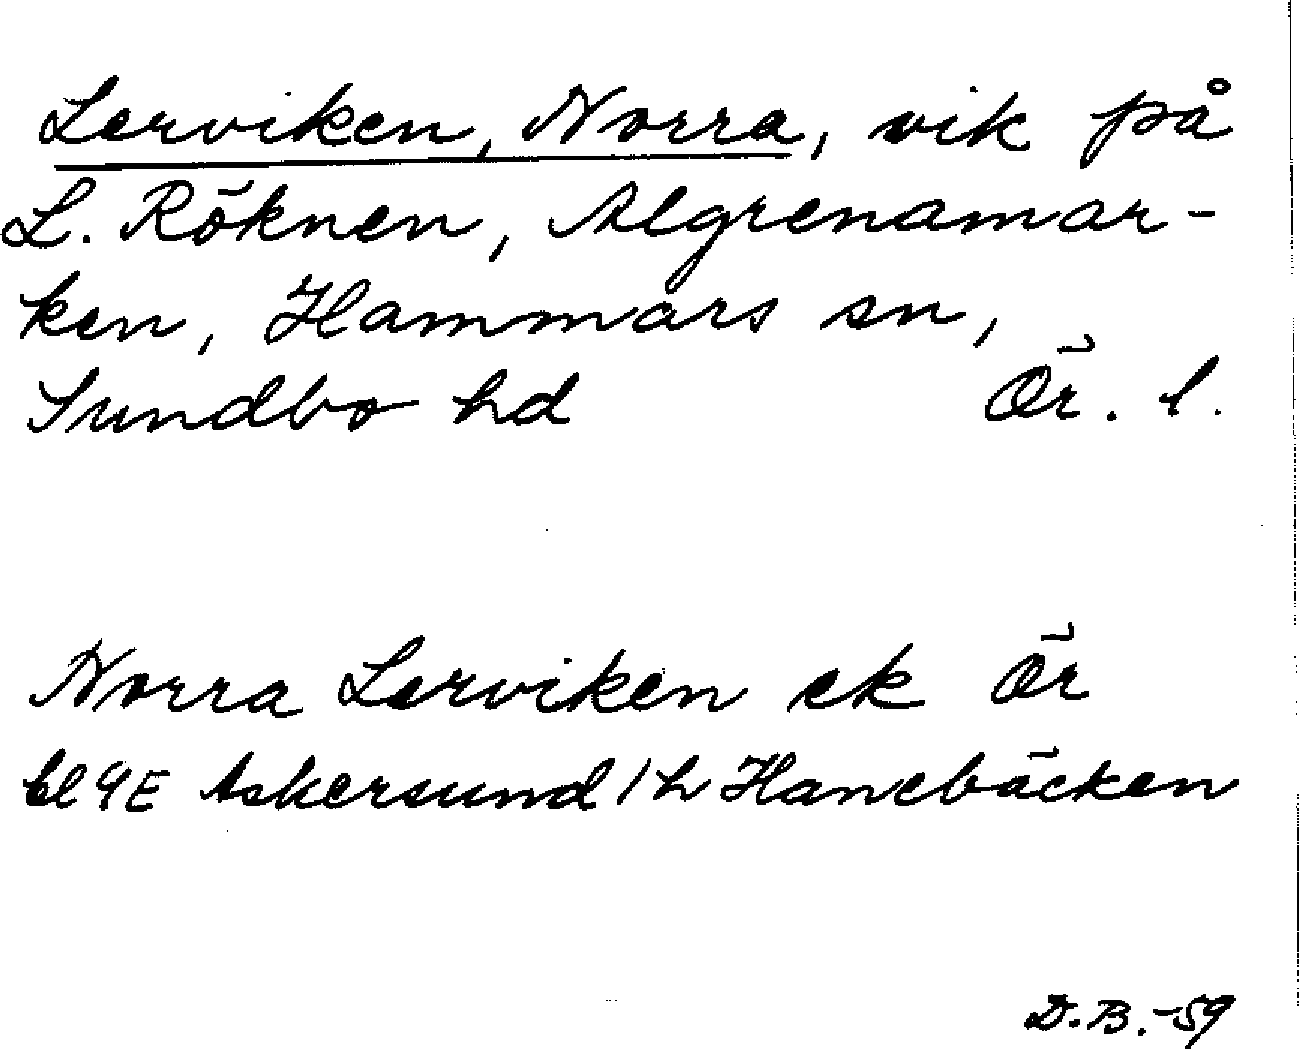 Lerviken, Norra, vik på
L. Röknen, Algrenamar-
ken, Hammars sn,
Sundbo hd Ör. l.
Norra Lerviken ek Ör
bl 9E Askersund / h Hanebäcken
D.B.-59